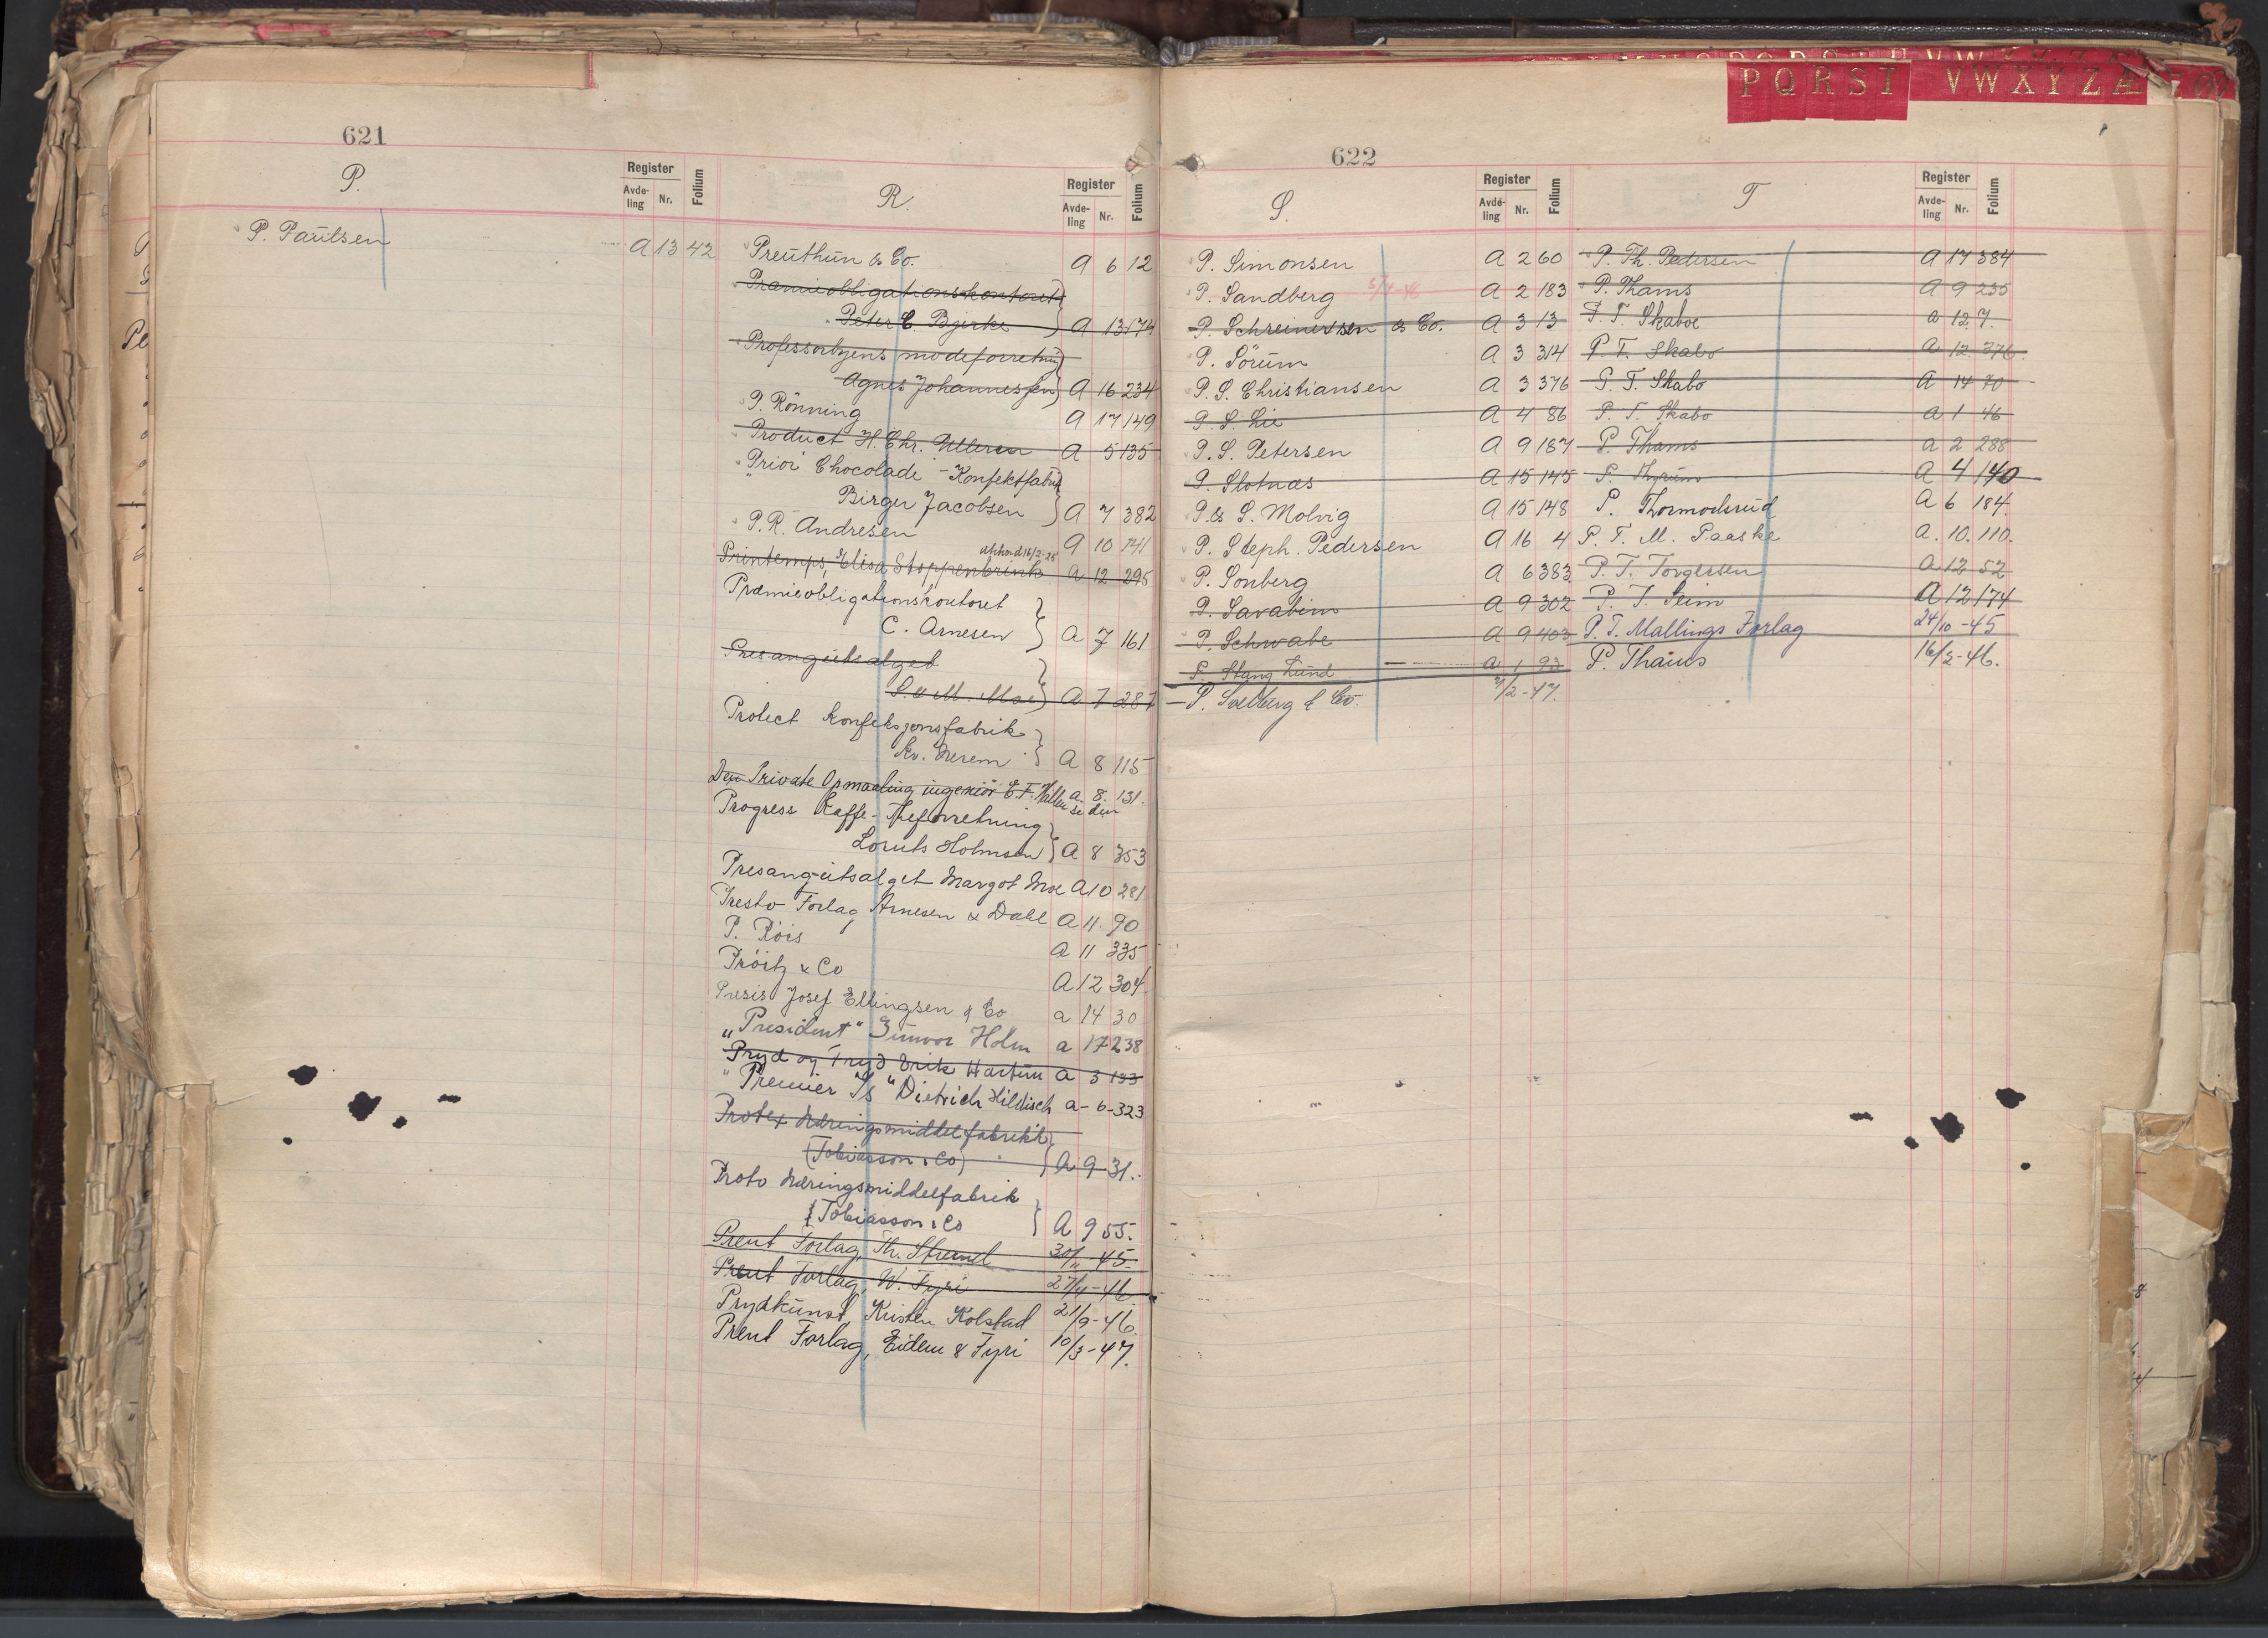 P Q R S T V W X Y Z Æ Ø
621
P.
Register
Avde-
ling
Nr.
Folium
P. Paulsen A 13 42
R.
Register
Avde-
ling
Nr.
Folium
Preuthun & Co. A 6 12
Præmieobligationskontoret
Peter C Bjerke A 13 174
Professorbyens modeforretning
Agnes Johannessen A 16 234
P. Rönning A 17 149
Product H. Chr. Ulleren A 5 135
Prior Chocolade - Konfektfabrik
Birger Jacobsen A 7 382
P. R. Andresen A 10 141
Printemps, Elisa Stoppenbrink A 12 295
Præmieobligationskontoret
C. Arnesen A 7 161
Presangutsalget
S. & M. Moe A 7 287
Protect Konfeksjonsfabrik
Kv. Herem A 8 115
Den Private Opmaaling ingeniör E. F. a. 8. 131.
Progress Kaffe- Theforretning
Loruts Holmsen A 8 353
Presangutsalget Margot Moe A 10 281
Presto Forlag Arnesen & Dahl A 11. 90
P. Röis A 11 335
Pröitz & Co A 12 304
Presis Josef Ellingsen & Co a 14 30
„President" Gunvor Holm a 17 238
Pryd og Fryd Erik Hartun a 3 133
"Premier Is" Dietrich Hildisch a - 6 - 323
Protex Næringsmiddelfabrikk
(Tobiasson & Co) A 9 31.
Proto Næringsmiddelfabrik
(Tobiasson & Co A 9 55.
Prent Forlag, Th. Strand 30/11 - 45.
Prent Forlag, W. Fyri 27/4 - 46
Prydkunst, Kristen Kolstad 21/9 - 46.
Prent Forlag, Eidem & Fyri 10/3 - 47.
622
S.
Register
Avde-
ling
Nr.
Folium
P. Simonsen A 2 60
P. Sandberg A 2 183
P. Schreinersen & Co. A 3 13
P. Sörum A 3 314
P. S. Christiansen A 3 376
P. S. Lie A 4 86
P. S. Petersen A 9 187
P. Slotnæs A 15 145
P. & S. Molvig A 15 148
P. Steph. Pedersen A 16 4
P. Sonberg A 6 383
P. Savabini A 9 302
P. Schwabe A 9 403
P. Stang Lund a 1 93
P. Solberg & Co. /2 - 47.
T
Register
Avde-
ling
Nr.
Folium
P. Th. Pedersen A 17 384
P. Thams A 9 235
P. T. Skaboe a 12 7.
P. T. Skabo A 12 376.
P. T. Skabo A 14 70
P. T. Skabo a 1 46
P. Thams a 2 288
P. Thyrum A 4 140
P. Thormodsrud A 6 184.
P. T. M. Paaske A. 10. 110.
P. T. Torgersen A 12 52
P. T. Seim A 12 174
P. T. Mallings Forlag 24/10 - 45
P. Thams 16/2 - 46.